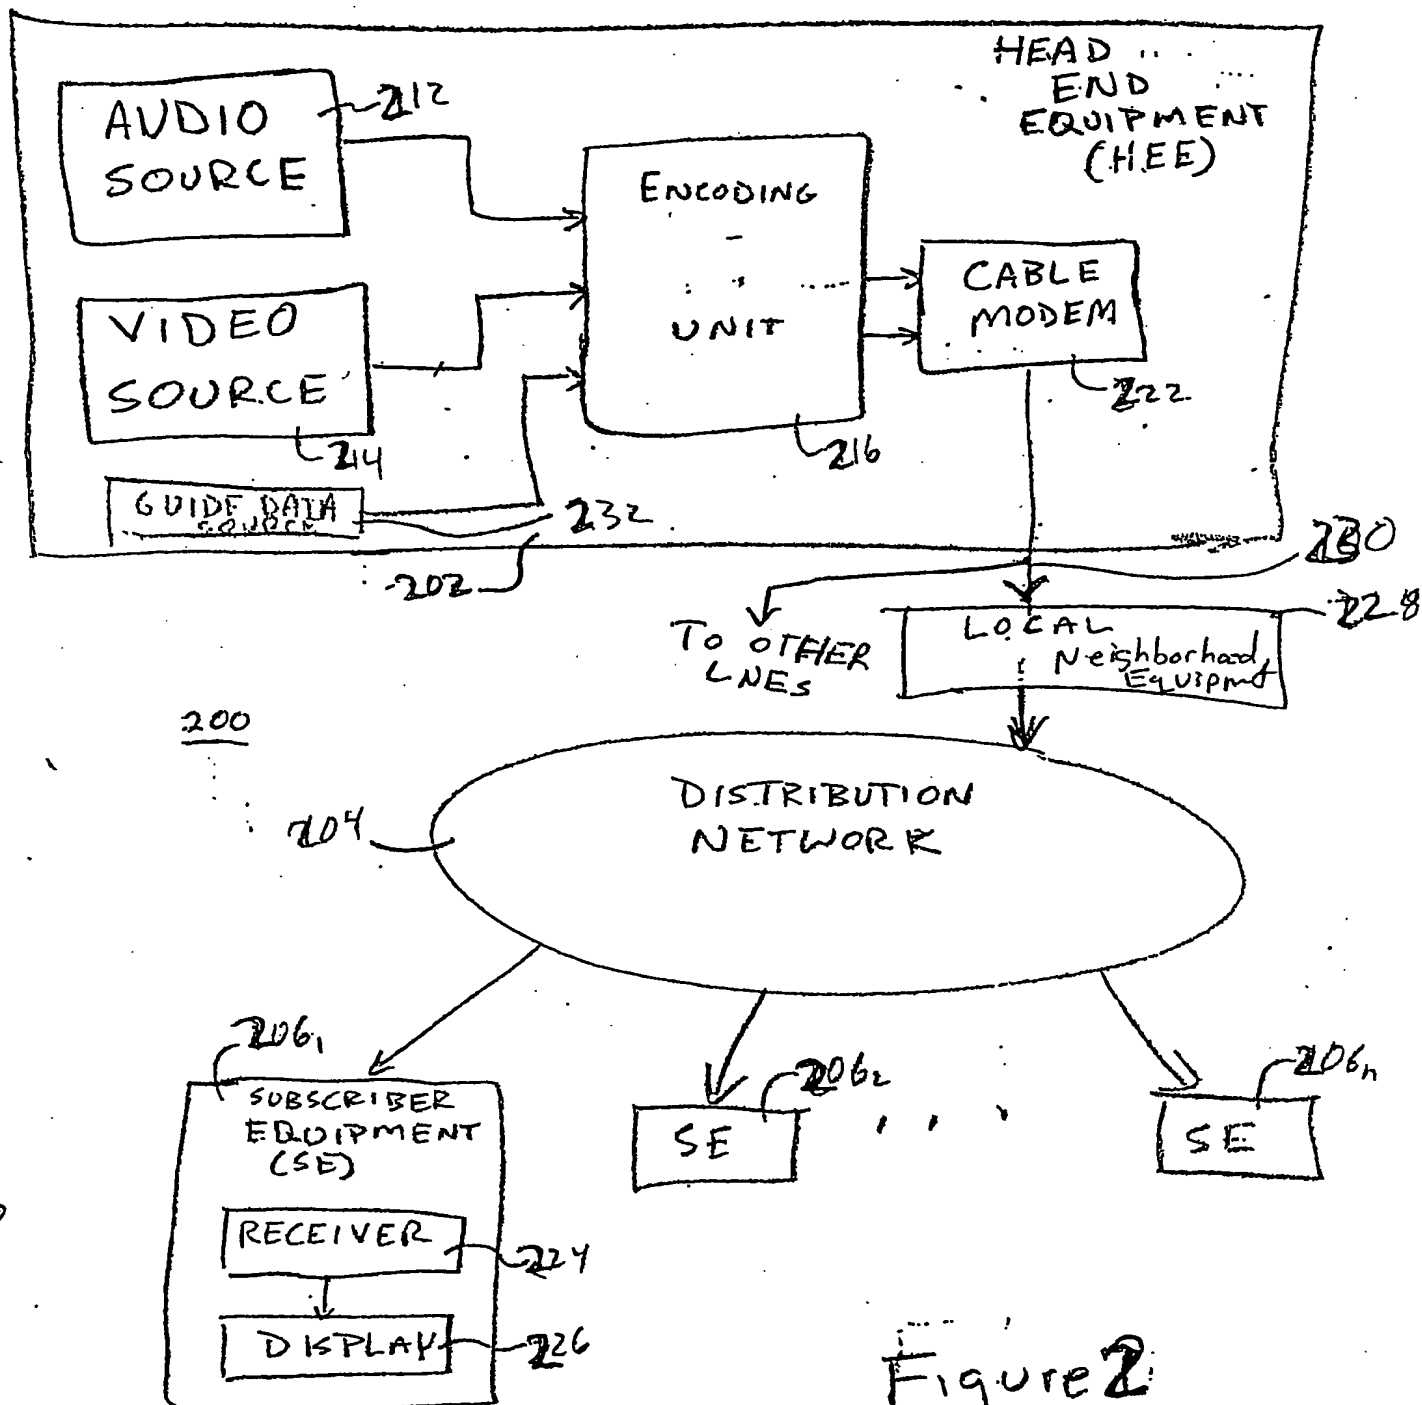 HEAD
END
EQUIPMENT
(HEE)
AUDIO
SOURCE
212
ENCODING
UNIT
216
CABLE
MODEM
222
VIDEO
SOURCE
214
GUIDE DATA
SOURCE
232
202
230
TO OTHER
LNES
228
LOCAL
Neighborhood
Equipmt
200
204
DISTRIBUTION
NETWORK
206₁
SUBSCRIBER
EQUIPMENT
(SE)
RECEIVER
224
DISPLAY
226
206₂
SE
. . .
206n
SE
Figure 2